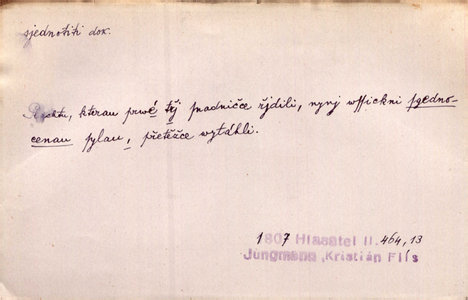 sjednotiti dok.
kterau prwé třj pradničce řjdili, nynj wssickni sgedno-
cenau sylau, přetěžce wytáhli.
1807 Hlasatel II. 464, 13
Jungmann, Kristián Flís